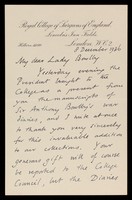 Royal College of Surgeons of England,
Lincoln's Inn Fields,
London, W.C.2
8 December 1936
My dear Lady Bowlby
Yesterday evening the
President brought to the
College as a present from
you the manuscripts of
Sir Anthony Bowlby's war
Diaries, and I write at once
to thank you very sincerely
for this invaluable addition
to our collections. Your
generous gift will of course
be reported to the College
Council, but the Diaries